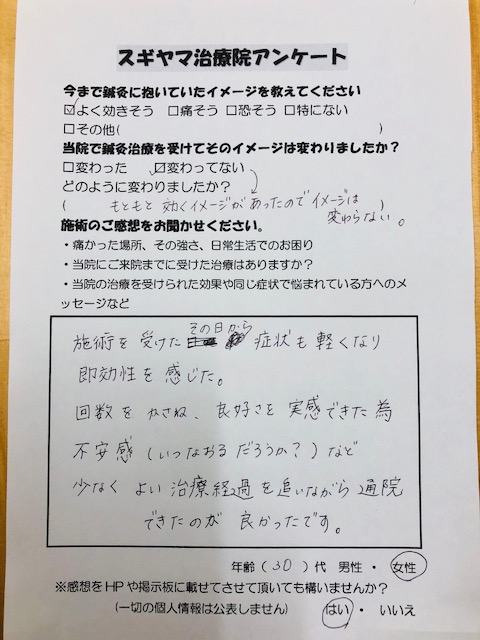 スギヤマ治療院アンケート
今まで鍼灸に抱いていたイメージを教えてください
☑よく効きそう □痛そう □恐そう □特にない
□その他( )
当院で鍼灸治療を受けてそのイメージは変わりましたか？
□変わった ☑変わってない
どのように変わりましたか？
( もともと 効くイメージがあったのでイメージは )
変わらない。
施術のご感想をお聞かせください。
・痛かった場所、その強さ、日常生活でのお困り
・当院にご来院までに受けた治療はありますか？
・当院の治療を受けられた効果や同じ症状で悩まれている方へのメ
ッセージなど
その日から
施術を受けた 症状も軽くなり
即効性を感じた。
回数をかさね、良好さを実感できた為
不安感(いつなおるだろうか？)など
少なく よい治療経過を追いながら通院
できたのが 良かったです。
年齢 (30) 代 男性 ・ 女性
※感想をHPや掲示板に載せてさせて頂いても構いませんか？
(一切の個人情報は公表しません) はい ・ いいえ